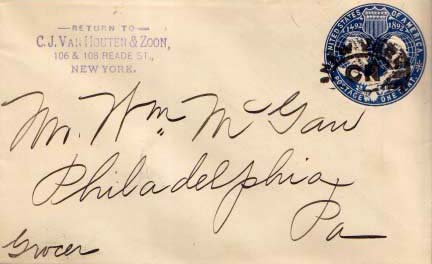 RETURN TO
C. J. VAN HOUTEN & ZOON,
106 & 108 READE ST.,
NEW YORK.
UNITED STATES OF AMERICA
1492 1892
POSTAGE ONE CENT
Mr. Wm. McGaw
Philadelphia
Pa
Grocer